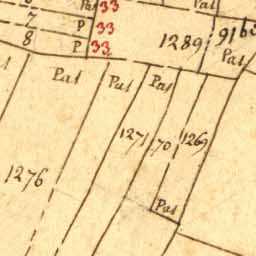 Pat 33
Pat
7 P 33
8 P 33
1289
916
Pat
Pat
Pat
Pat
1271
70
1269
1276
Pat